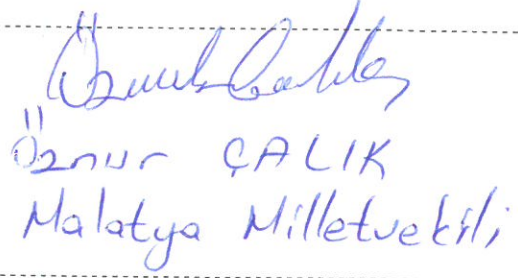 Öznur ÇALIK
Malatya Milletvekili